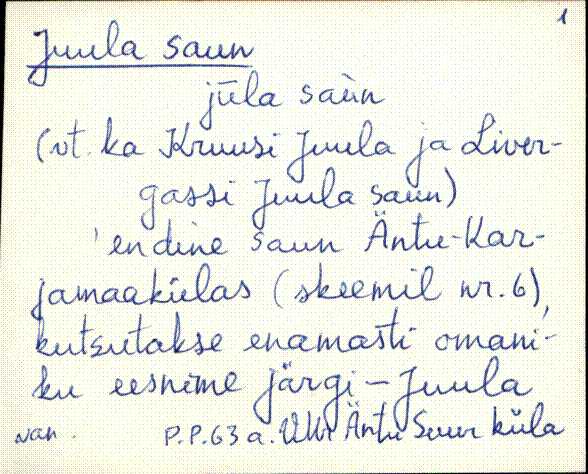 1
Juula saun
jūla saùn
(vt. ka Kruusi Juula ja Liver-
gassi Juula saun)
'endine saun Äntu-Kar-
jamaakülas (skeemil nr. 6),
kutsutakse enamasti omani-
ku eesnime järgi – Juula'
van. P.P. 63 a. VMr Äntu Suur küla